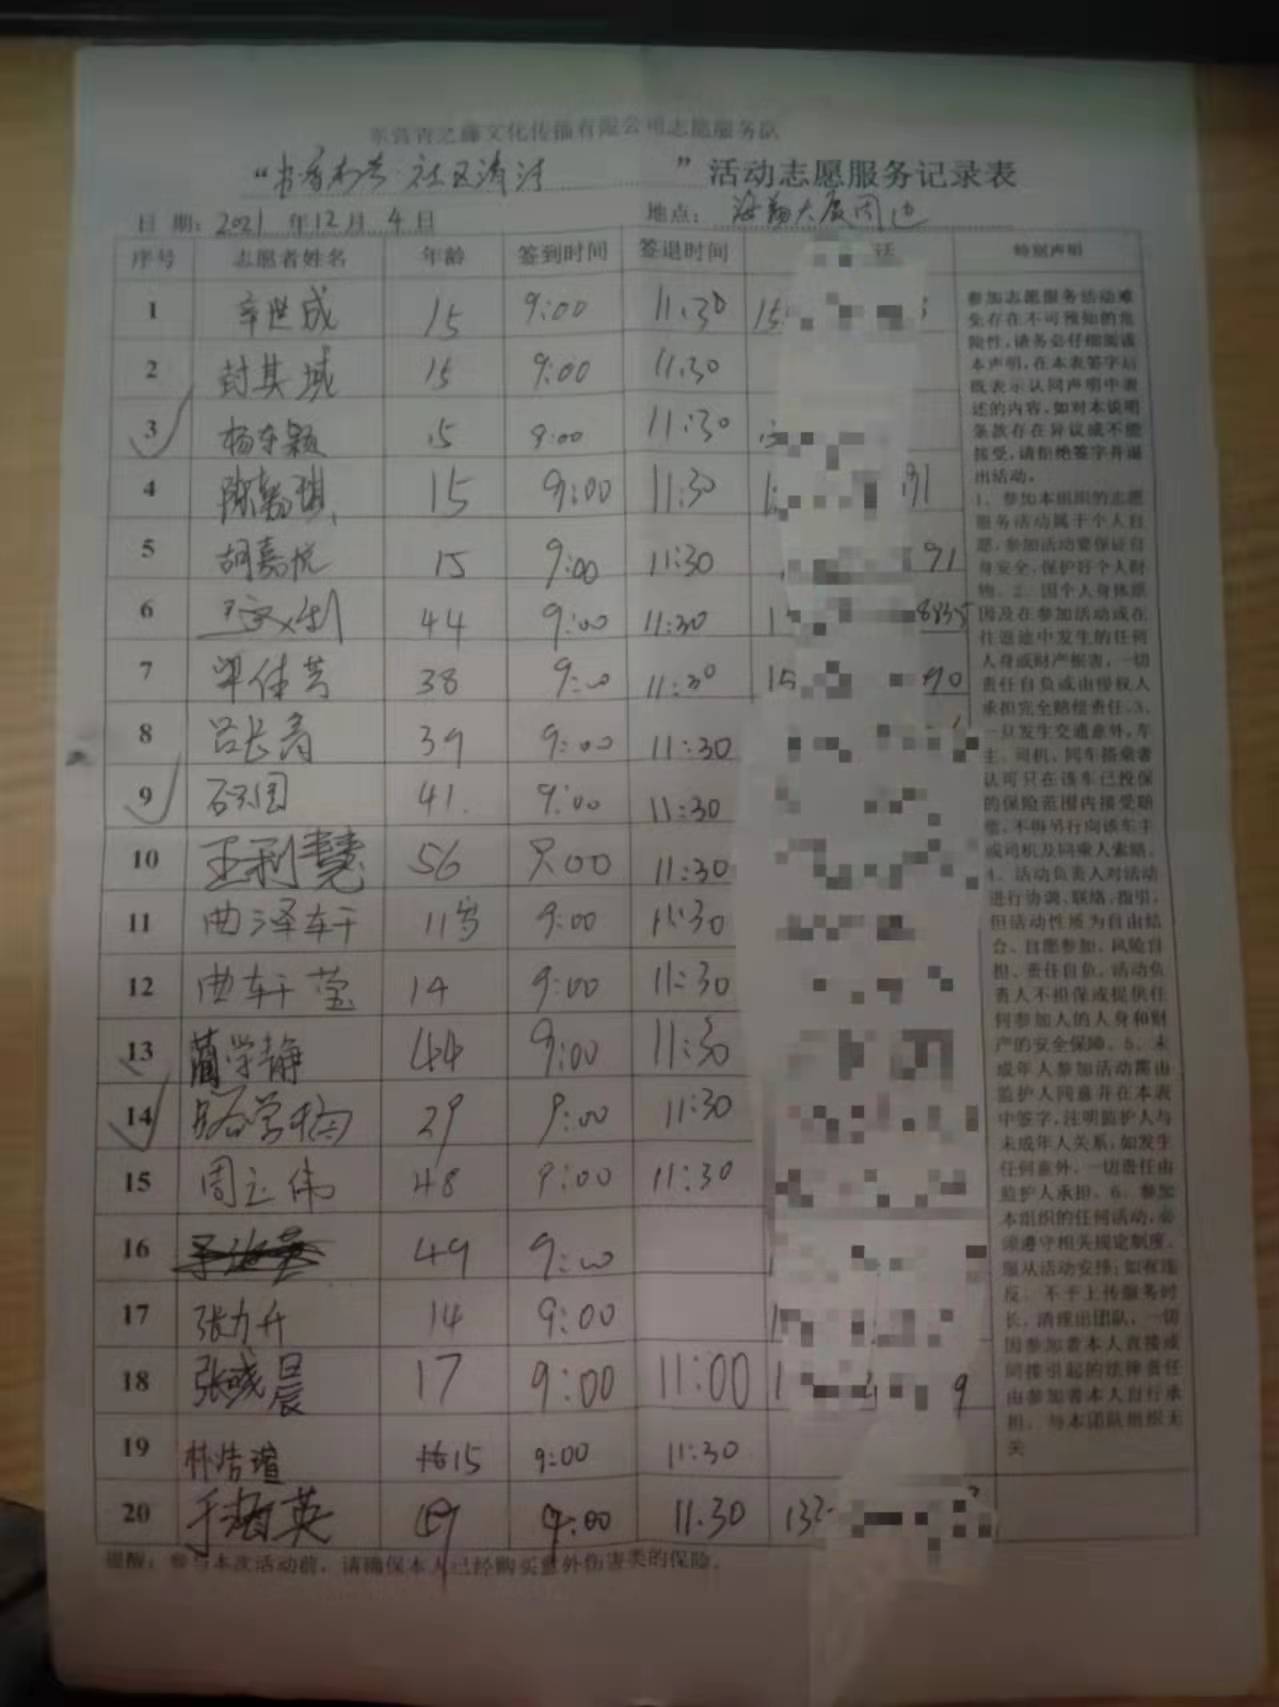 东营青之藤文化传播有限公司志愿服务队
“书香 社区清洁 ”活动志愿服务记录表
日 期: 2021 年12月 4日 地点: 海瀚大厦周边
序号 志愿者姓名 年龄 签到时间 签退时间 话 特别声明
1 辛世成 15 9:00 11:30 15
2 封其域 15 9:00 11:30
3 杨东颖 15 9:00 11:30
4 15 9:00 11:30 91
5 胡嘉悦 15 9:00 11:30 91
6 44 9:00 11:30 1 8835
7 佳芳 38 9:00 11:30 15 90
8 吕长青 39 9:00 11:30
9 41 9:00 11:30
10 王利慧 56 9:00 11:30
11 曲泽轩 11岁 9:00 11:30
12 曲轩莹 14 9:00 11:30
13 蔺学静 44 9:00 11:30
14 29 9:00 11:30
15 周立伟 48 9:00 11:30
16 49 9:00
17 张力升 14 9:00
18 张彧晨 17 9:00 11:00 1 9
19 林浩瑄 15 9:00 11:30
20 英 49 9:00 11:30 132
参加志愿服务活动难
免存在不可预知的危
险性,请务必仔细阅读
本声明,在本表签字后
既表示认同声明中表
述的内容,如对本说明
条款存在异议或不能
接受,请拒绝签字并退
出活动。
1、参加本组织的志愿
服务活动属于个人自
愿,参加活动要保证自
身安全,保护好个人财
物。2、因个人身体原
因及在参加活动或在
往返途中发生的任何
人身或财产损害,一切
责任自负或由侵权人
承担完全赔偿责任。3、
一旦发生交通意外,车
主、司机、同车搭乘者
认可只在该车已投保
的保险范围内接受赔
偿,不得另行向该车主
或司机及同乘人索赔。
4、活动负责人对活动
进行协调、联络、指引,
但活动性质为自由结
合、自愿参加、风险自
担、责任自负。活动负
责人不担保或提供任
何参加人的人身和财
产的安全保障。5、未
成年人参加活动需由
监护人同意并在本表
中签字,注明监护人与
未成年人关系,如发生
任何意外,一切责任由
监护人承担。6、参加
本组织的任何活动,必
须遵守相关规定制度,
服从活动安排;如有违
反,不予上传服务时
长,清理出团队。一切
因参加者本人直接或
间接引起的法律责任
由参加者本人自行承
担,与本团队组织无
关
提醒:参与本次活动前,请确保本人已经购买意外伤害类的保险。